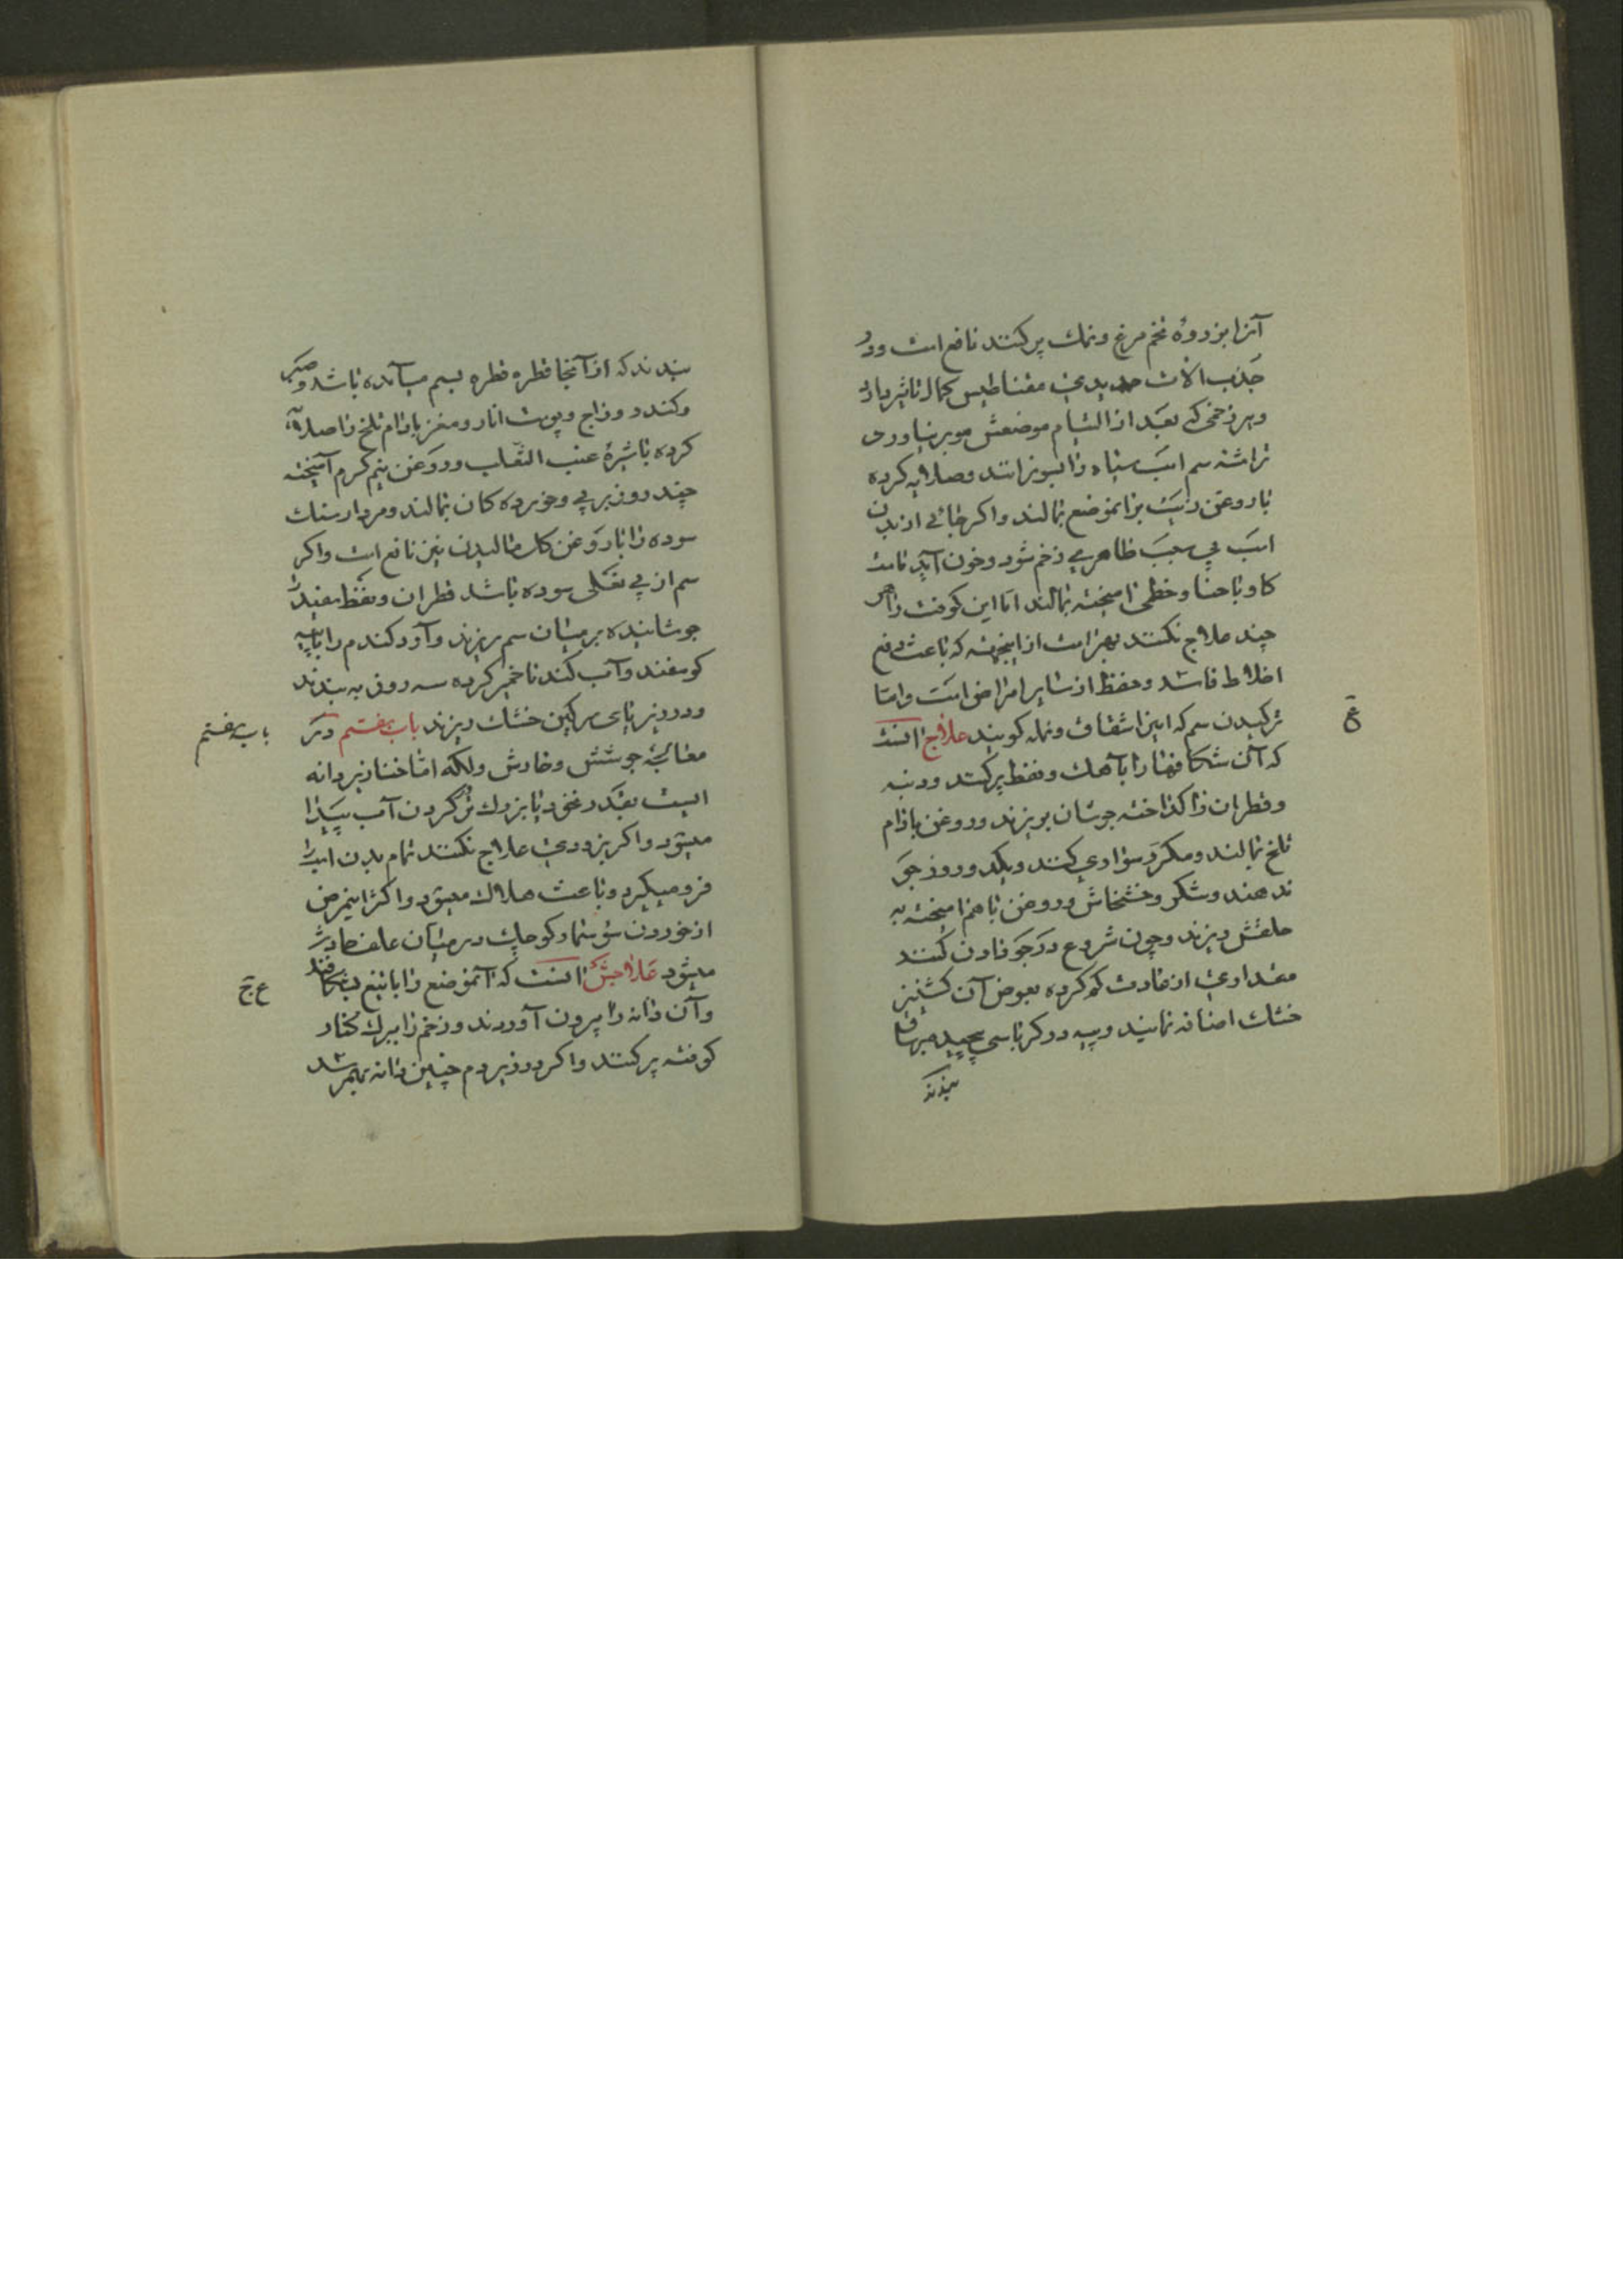 آنرا بزردهٔ تخم مرغ ونمك پر كنند نافع است ودر
جذب الات حديدی مقناطيس كمال تاثير دارد
وهر زخمی كه بعد از التيام موضعش مو بر نياورد
تراشه سم اسب سياه را بسوزانند وصلايه كرده
با روغن زيت برانموضع بمالند واكر جائی از بدن
اسب بی سبب ظاهری زخم شود وخون آيد با ماست
كاو يا حنا وخطمی اميخته بمالند اما اين كوفت را هر
چند علاج نكنند بهتر است از اينجهت كه باعث دفع
اخلاط فاسد وحفظ از ساير امراض است واما
تركيدن سم كه اينرا شقاق ونمله كويند علاج انست
ع
كه آن شكافها را با آهك ونفط پر كنند ودنبه
وقطران را كداخته جوشان بريزند وروغن بادام
تلخ بمالند ومكرر سواری كنند ويكد وروز جو
ندهند وشكر وخشخاش وروغن باهم اميخته به
حلقش ريزند وچون شروع در جو دادن كنند
مقداری از عادت كم كرده بعوض آن كشنيز
خشك اضافه نمايند وپيه در كرباسی پيچيده
بندند
بندند كه از آنجا قطره قطره بسم ميآمده باشد وصبر
وكندر وزاج وپوست انار ومغز بادام تلخ را صلايه
كرده با شيرهٔ عنب الثعلب وروغن نيم كرم آميخته
چند روز بر پی وخورده كان بمالند ومردار سنك
سوده را با روغن كاو ماليدن نيز نافع است واكر
سم از بی نعلی سوده باشد قطران ونفط سفيد را
جوشانيده بر ميان سم ريزند وآرد كندم را با پيه
كوسفند وآب كندنا خمير كرده سه روز به بندند
ودر زير پای سركين خشك ريزند باب هفتم در
باب هفتم
معالجهٔ جوشش وخارش ولكه اما خنازير دانه
ايست بقدر نخود يا بزرك تر كردن آب پيدا
ميشود واكر بزودی علاج نكنند تمام بدن اسب را
فرو ميكيرد وباعث هلاك ميشود واكثر اينمرض
از خوردن كوچك در ميان علف حادث
ميشود علاجش انست كه آنموضع را با تيغ بشكافند
ع ج
وآن دانه را بيرون آورند وزخم را ببرك كنار
كوفته پر كنند واكر در زير دم چنين دانه بهمرسد